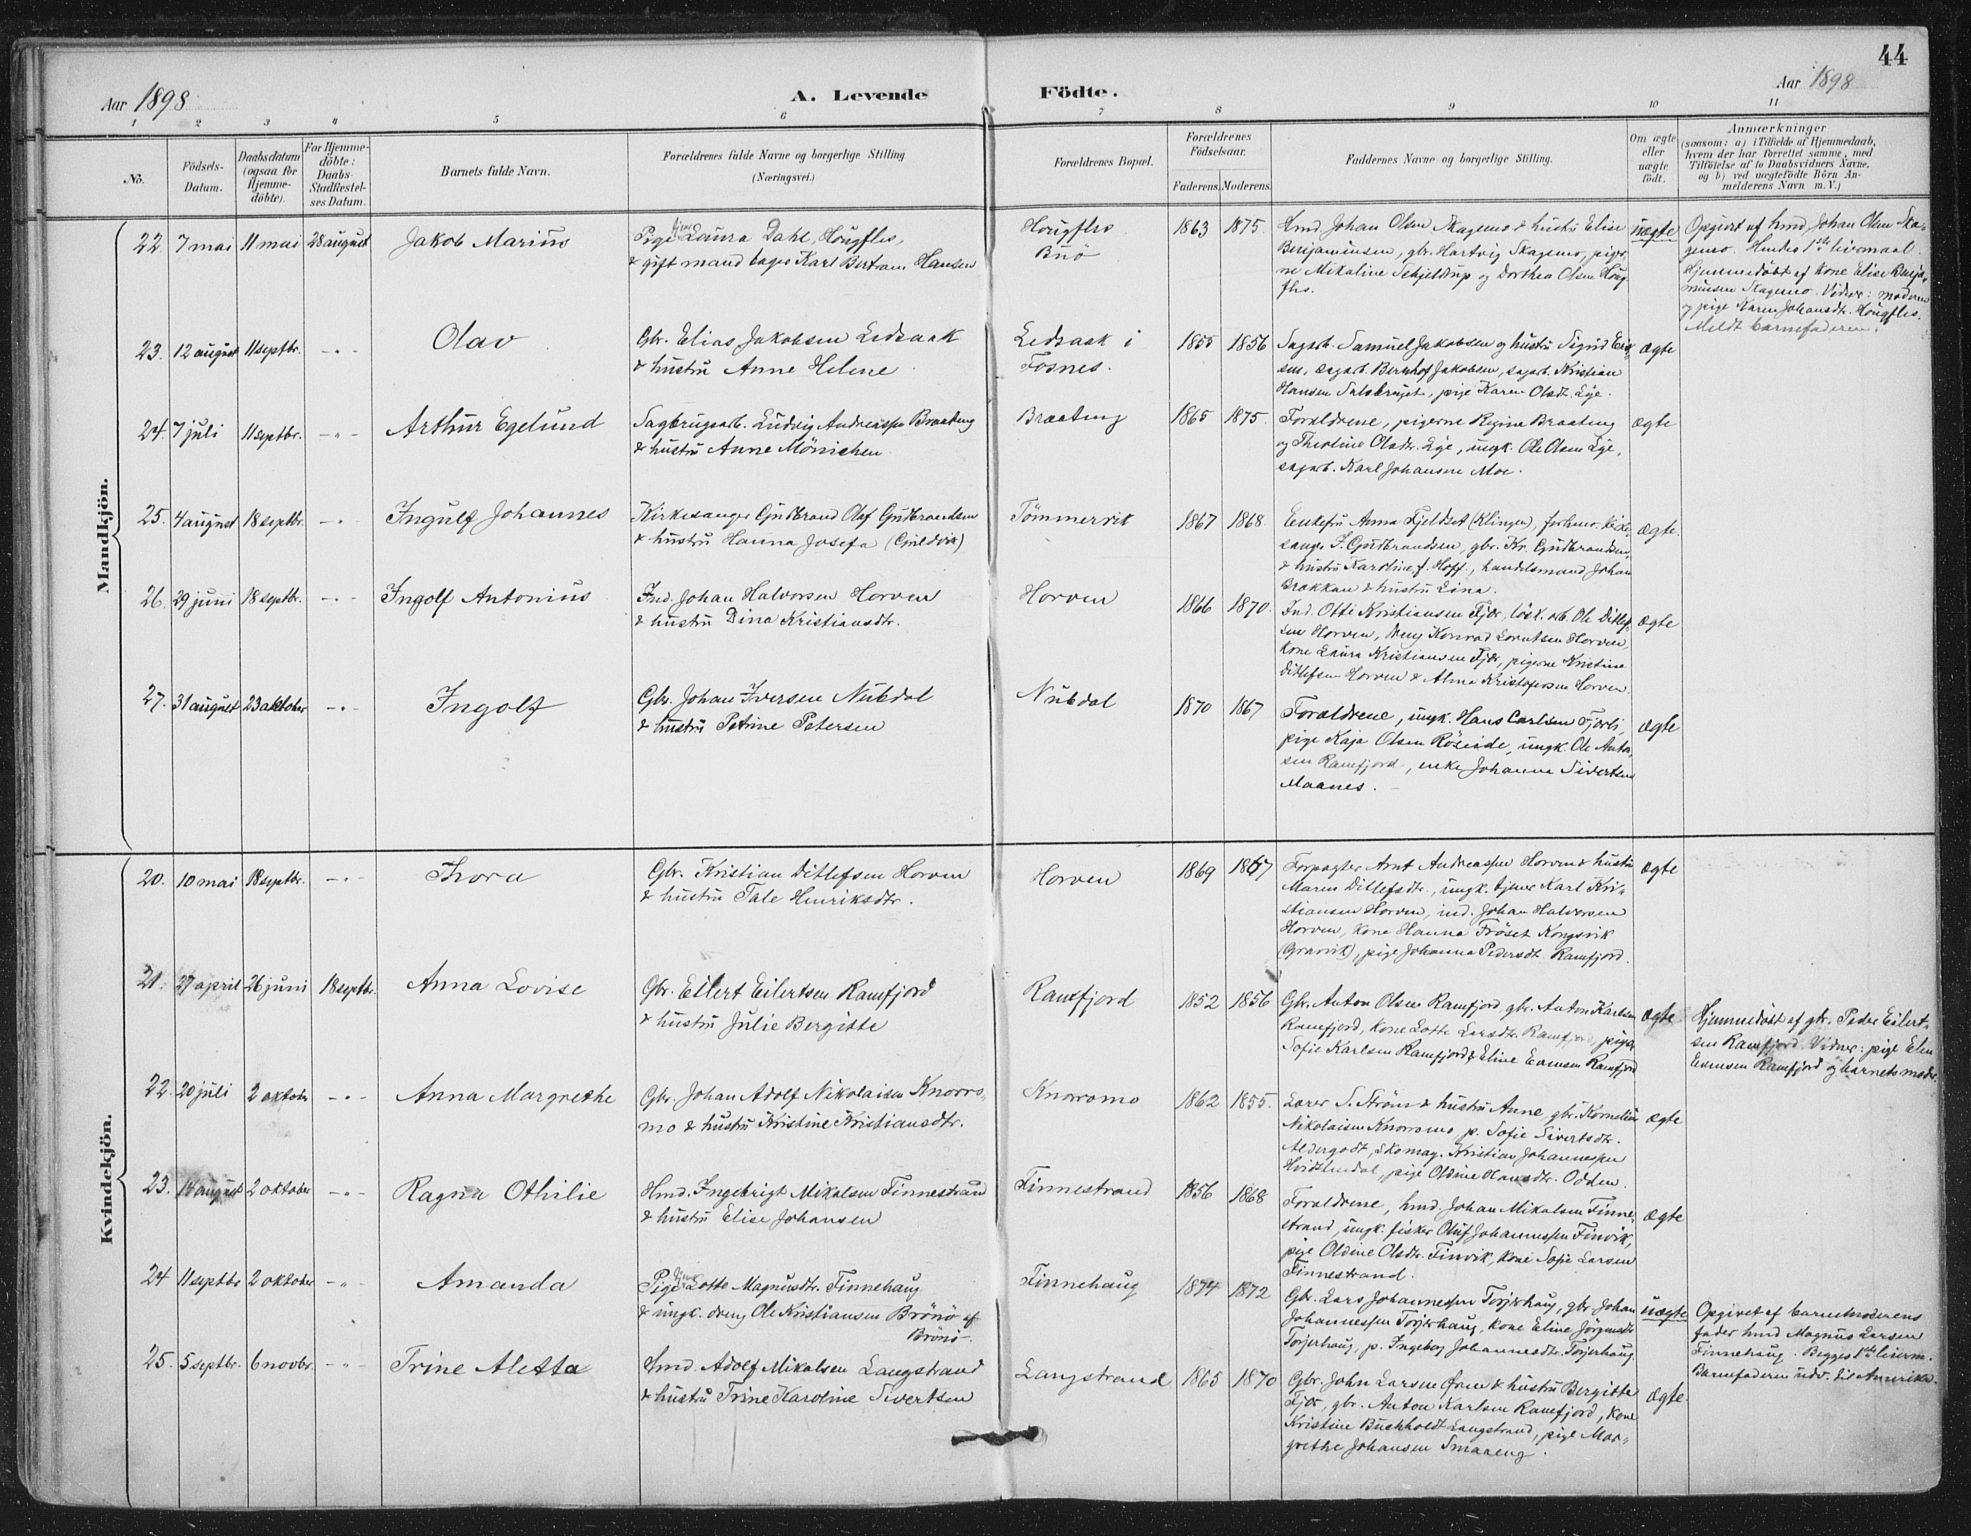 44
Aar 1898
A. Levende Födte.
Aar 1898
1 2 3 4 5 6 7 8 9 10 11
No.
Födsels-
Datum.
Daabsdatum
(ogsaa for
Hjemme-
döbte).
For Hjemme-
döbte:
Daabs-
Stadfæstel-
ses Datum.
Barnets fulde Navn.
Forældrenes fulde Navne og borgerlige Stilling
(Næringsvei.)
Forældrenes Bopæl.
Forældrenes
Födselsaar.
Faderens. Moderens.
Faddernes Navne og borgerlige Stilling.
Om ægte
eller
uægte
født.
Anmærkninger
(saasom: a) i Tilfælde af Hjemmedaab,
hvem der har forrettet samme, med
Tilföielse af to Daabsvidners Navne,
og b) ved uægtefödte Börn An-
melderens Navn m. V.)
Mandkjön.
22. 7 mai 11 mai 28 august Jakob Marius
Pige Laura Dahl, Hougfles,
& gift mand bager Karl Bertram Hansen
Hougfles
Buö
1863 1875.
Hmd Johan Olsen Skagemo & hustru Elise
Benjaminsen, gbr. Hartvig Skagemo, piger-
ne Mikaline Schjeldrup og Dorthea Olsen Houg-
fles.
uægte
Opgivet af hmd Johan Olsen Ska-
gemo. Hendes 1ste leiermaal.
Hjemmedöbt af kone Elise Benja-
minsen Skagemo. Vidner: moderen
og pige Karen Johansdtr. Hougfles.
Meldt barnefaderen.
23. 12 august 11 septbr. -"- Olav
Gbr. Elias Jakobsen Ledsaak
& hustru Anne Helene
Ledsaak i
Fosnes.
1855 1856
Sagarb. Samuel Jakobsen og hustru Sigrid
sen, sagarb. Bernhof Jakobsen, sagarb. Kristian
Hansen Salsbruget, pige Karen Olsdtr. Lye.
ægte
24. 7 juli 11 septbr. -"- Arthur Egelund
Sagbrugsarb. Ludvig Andreassen Braateng
& hustru Anne Mönichen
Braateng
1865 1875.
Forældrene, pigerne Regine Braateng
og Theoline Olsdtr. Lye, ungk. Ole Olsen Lye,
sagarb. Karl Johansen Moe.
ægte
25. 4 august 18 septbr. -"- Ingulf Johannes
Kirkesanger Gudbrand Olaf Gudbrandsen
& hustru Hanna Josefa (Gjeldvik)
Tömmervik
1867 1868.
Enkefru Anna Fjeldset (Klingen), forhenv. kirke-
sanger S. Gudbrandsen, gbr. Kr. Gudbrandsen,
& hustru Karoline f. Hoff, handelsmand Johan
Brækkan & hustru Lina.
ægte.
26. 29 juni 18 septbr. -"- Ingolf Antonius
Ind. Johan Halvorsen Horven
& hustru Dina Kristiansdtr.
Horven
1866 1870.
Ind. Otti Kristiansen Fjær, lösk. arb. Ole Ditlef-
sen Horven, dreng Konrad Lorntsen Horven,
kone Laura Kristiansen Fjær, pigerne Kristine
Ditlefsen Horven & Alma Kristofersen Horven.
ægte
27. 31 august 23 oktober -"- Ingolf
Gbr. Johan Iversen Nubdal
& hustru Petrine Petersen
Nubdal
1870 1867
Forældrene, ungk. Hans Carlsen Fjorli,
pige Kaja Olsen Röseide, ungk. Ole Anton-
sen Ramfjord, enke Johanna Sivertsen
Maanes.
ægte
Kvindekjön.
20. 10 mai 18 septbr. -"- Thora
Gbr. Kristian Ditlefsen Horven
& hustru Tale Henriksdtr.
Horven
1869 1867
Forpagter Arnt Andreassen Horven & hustru
Maren Ditlefsdtr., ungk. tjener Karl Kri-
stiansen Horven, ind. Johan Halvorsen
Horven, kone Hanna Fröset Kongsvik
(Gravvik), pige Johanna Pedersdtr. Ramfjord.
ægte
21. 27 april 26 juni 18 septbr. Anna Lovise
Gbr. Eilert Eilertsen Ramfjord
& hustru Julie Bergitte
Ramfjord
1852 1856
Gbr. Anton Olsen Ramfjord, gbr. Anton Karlsen
Ramfjord, kone Lotte Larsdtr. Ramfjord, piger
Sofie Karlsen Ramfjord & Eline Evensen Ramfjord
ægte
Hjemmedöbt af gbr. Peder Eilert-
sen Ramfjord. Vidner: pige Elen
Evensen Ramfjord og barnets moder.
22. 20 juli 2 oktober -"- Anna Margrethe
Gbr. Johan Adolf Nikolaisen Knorro-
mo & hustru Kristine Kristiansdtr.
Knorromo
1862 1855.
Lærer S. Ström & hustru Anne, gbr. Kornelius
Nikolaisen Knorromo, p. Sofie Sivertsdtr.
Aldergodt, skomag. Kristian Johannessen
Hvidstendal, pige Oldine Hansdtr. Odden.
ægte
23. 14 august 2 oktober -"- Ragna Othilie
Hmd. Ingebrigt Mikalsen Finnestrand
& hustru Elise Johansen
Finnestrand
1856 1868
Forældrene, hmd. Johan Mikalsen Finne-
strand, ungk. fisker Oluf Johannessen Finvik,
pige Oldine Olsdtr. Finvik, kone Sofie Larsen
Finnestrand.
ægte
24 11 septbr 2 oktober -"- Amanda
Pige Lotte Magnusdtr. Finnehaug
& ungk. dreng Ole Kristiansen Brönö af
Brönö
Finnehaug
1874 1872
Gbr. Lars Johannessen Torjerhaug, gbr. Johan
Johannessen Torjerhaug, kone Eline Jörgensdtr.
Torjerhaug, p. Ingeborg Johannesdtr. Torjerhaug.
uægte
Opgivet af barnemoderens
fader hmd Magnus Larsen
Finnehaug. Begges 1ste leierm.
Barnefaderen udv. til Amerika.
25. 5 septbr. 6 novbr. -"- Trine Aletta
Hmd. Adolf Mikalsen Langstrand
& hustru Trine Karoline Sivertsen
Langstrand
1865 1870
Gbr. John Larsen Øren & hustru Bergitte
Fjær, gbr. Anton Karlsen Ramfjord, kone
Kristine Buchholdt Langstrand, pige Mar-
grethe Johansen Smaaeng.
ægte.